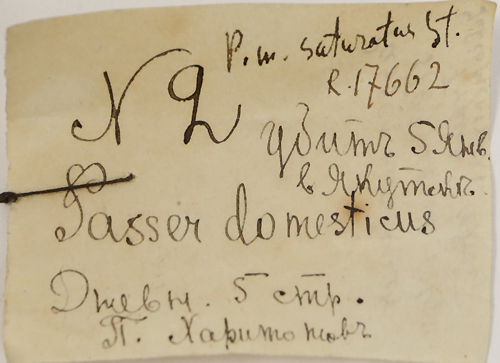 P. m. saturatus St.
R. 17662
N 2
убитъ 5 Янв.
в Якутскъ
Passer domesticus
Дневн. 5 стр.
П. Харитоновъ